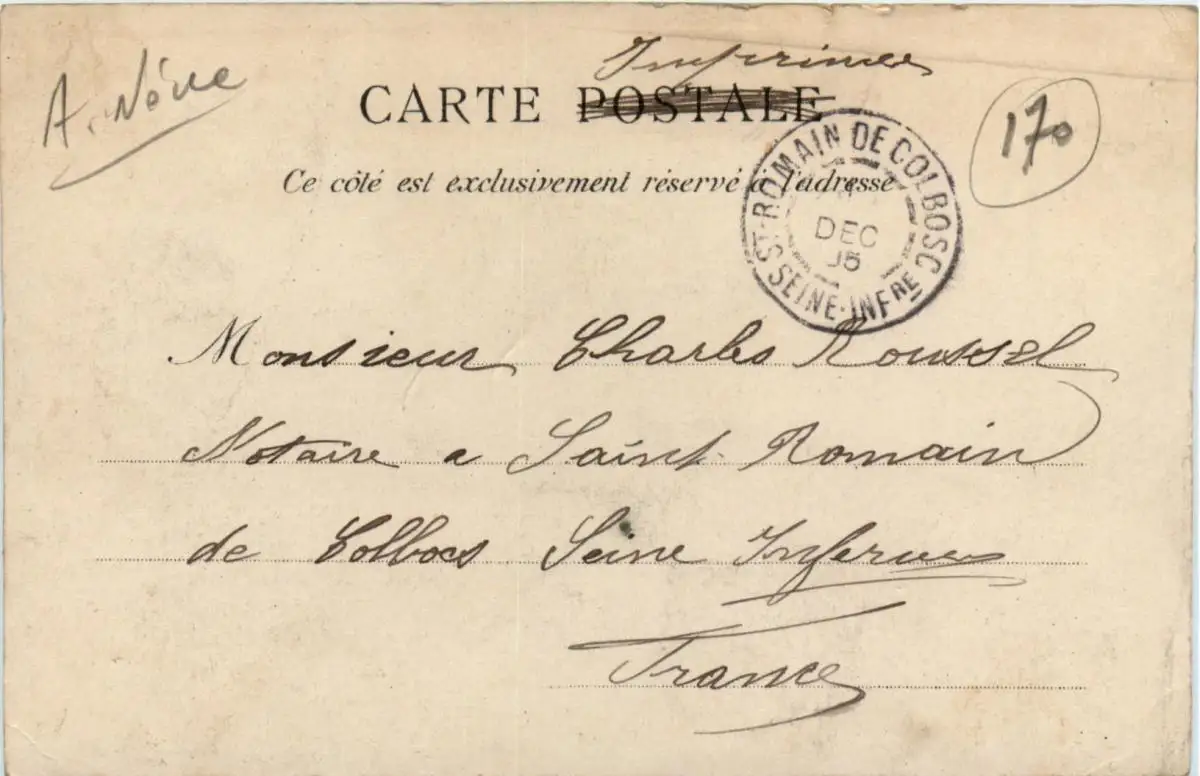 Imprimée
A. Nóve
CARTE POSTALE
170
Ce côté est exclusivement réservé à l'adresse
ST-ROMAIN DE COLBOSC
DEC
05
SEINE-INFRE
Monsieur Charles Roussel
Notaire a Saint Romain
de Colbocs Seine Inferieure
France